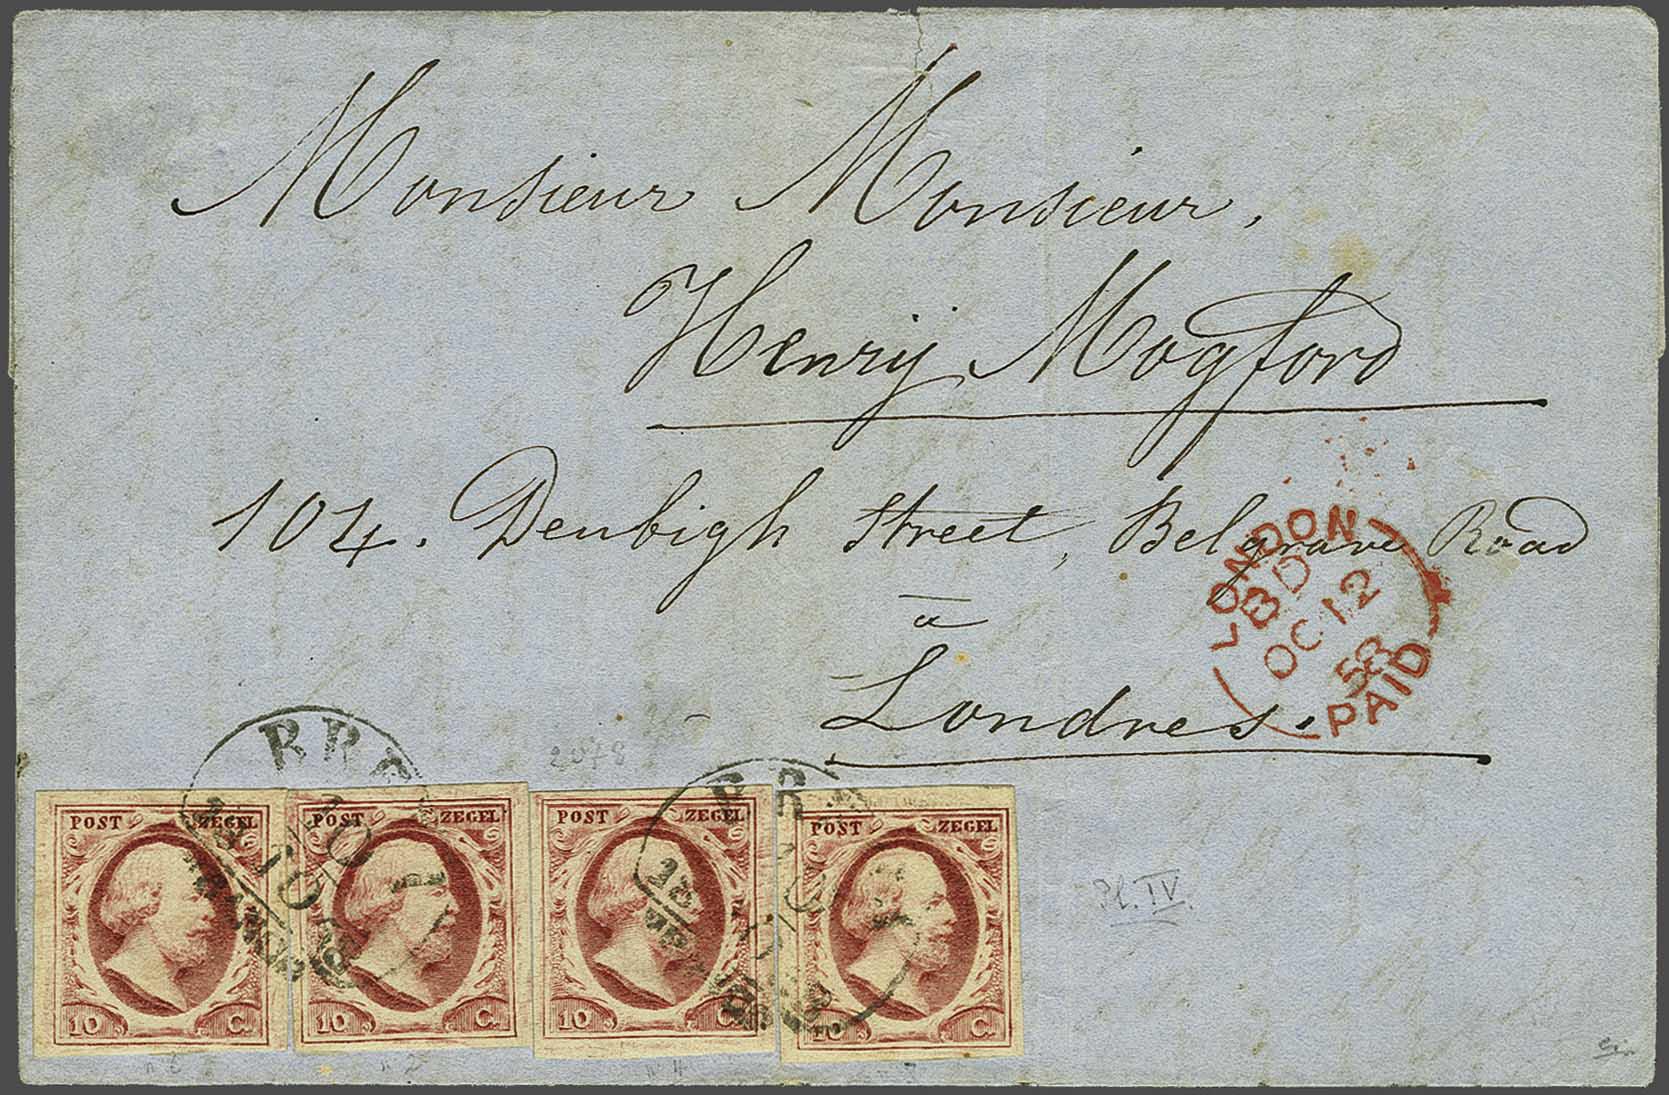 Monsieur Monsieur,
Henrij Mogford
104. Denbigh Street, Belgrave Road
à
Londres.
LONDON
BD
OC 12
58
PAID
2078
POST ZEGEL
10 C.
POST ZEGEL
10 C.
POST ZEGEL
10 C.
POST ZEGEL
10 C.
Pl. IV.